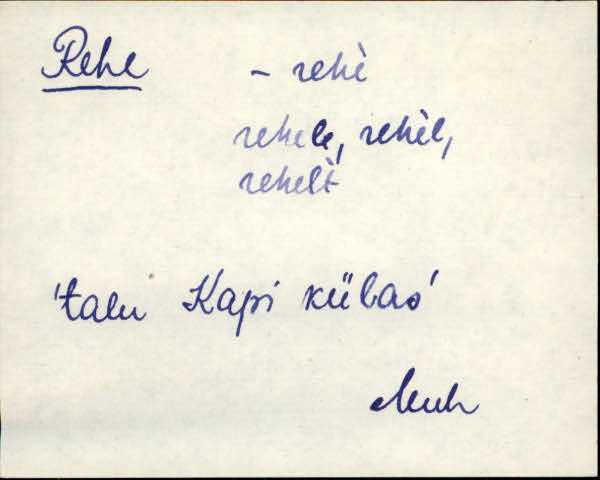 Rehe - rehè
rehele, rehèl,
rehelt
'talu Kapi külas'
Muh